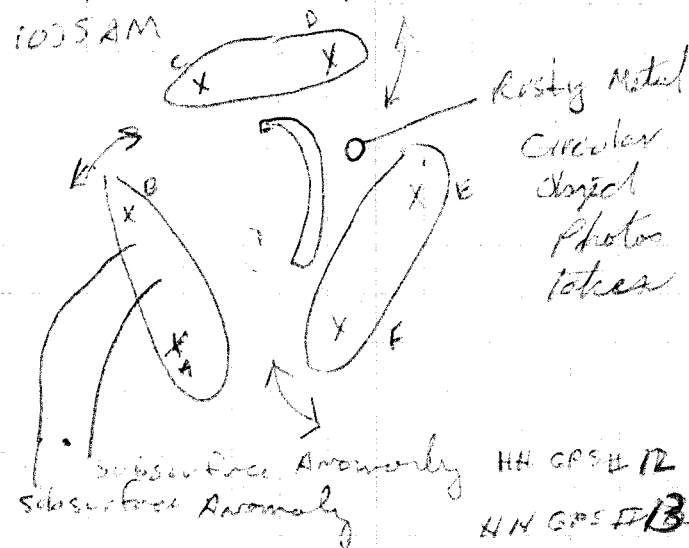 1035 AM
D
C
X
X
Rusty Metal
Circular
Object
Photos
taken
B
X
X
E
X
A
X
F
Subsurface Anomorly HH GPS # 12
Subsurface Anomaly
HH GPS # 13